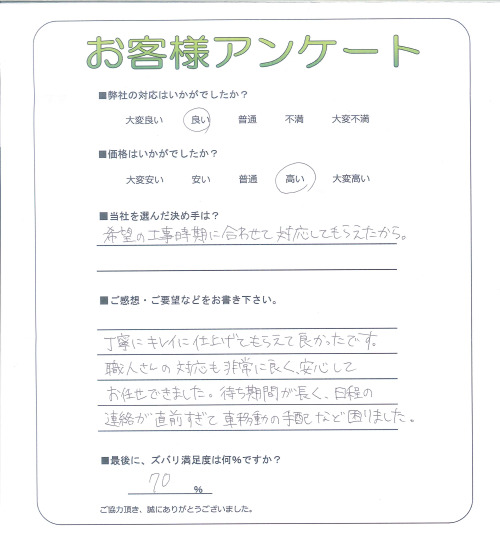 お客様アンケート
■弊社の対応はいかがでしたか？
大変良い 良い 普通 不満 大変不満
■価格はいかがでしたか？
大変安い 安い 普通 高い 大変高い
■当社を選んだ決め手は？
希望の工事時期に合わせて対応してもらえたから。
■ご感想・ご要望などをお書き下さい。
丁寧にキレイに仕上げてもらえて良かったです。
職人さんの対応も非常に良く、安心して
お任せできました。待ち期間が長く、日程の
連絡が直前すぎて車移動の手配など困りました。
■最後に、ズバリ満足度は何%ですか？
70 %
ご協力頂き、誠にありがとうございました。